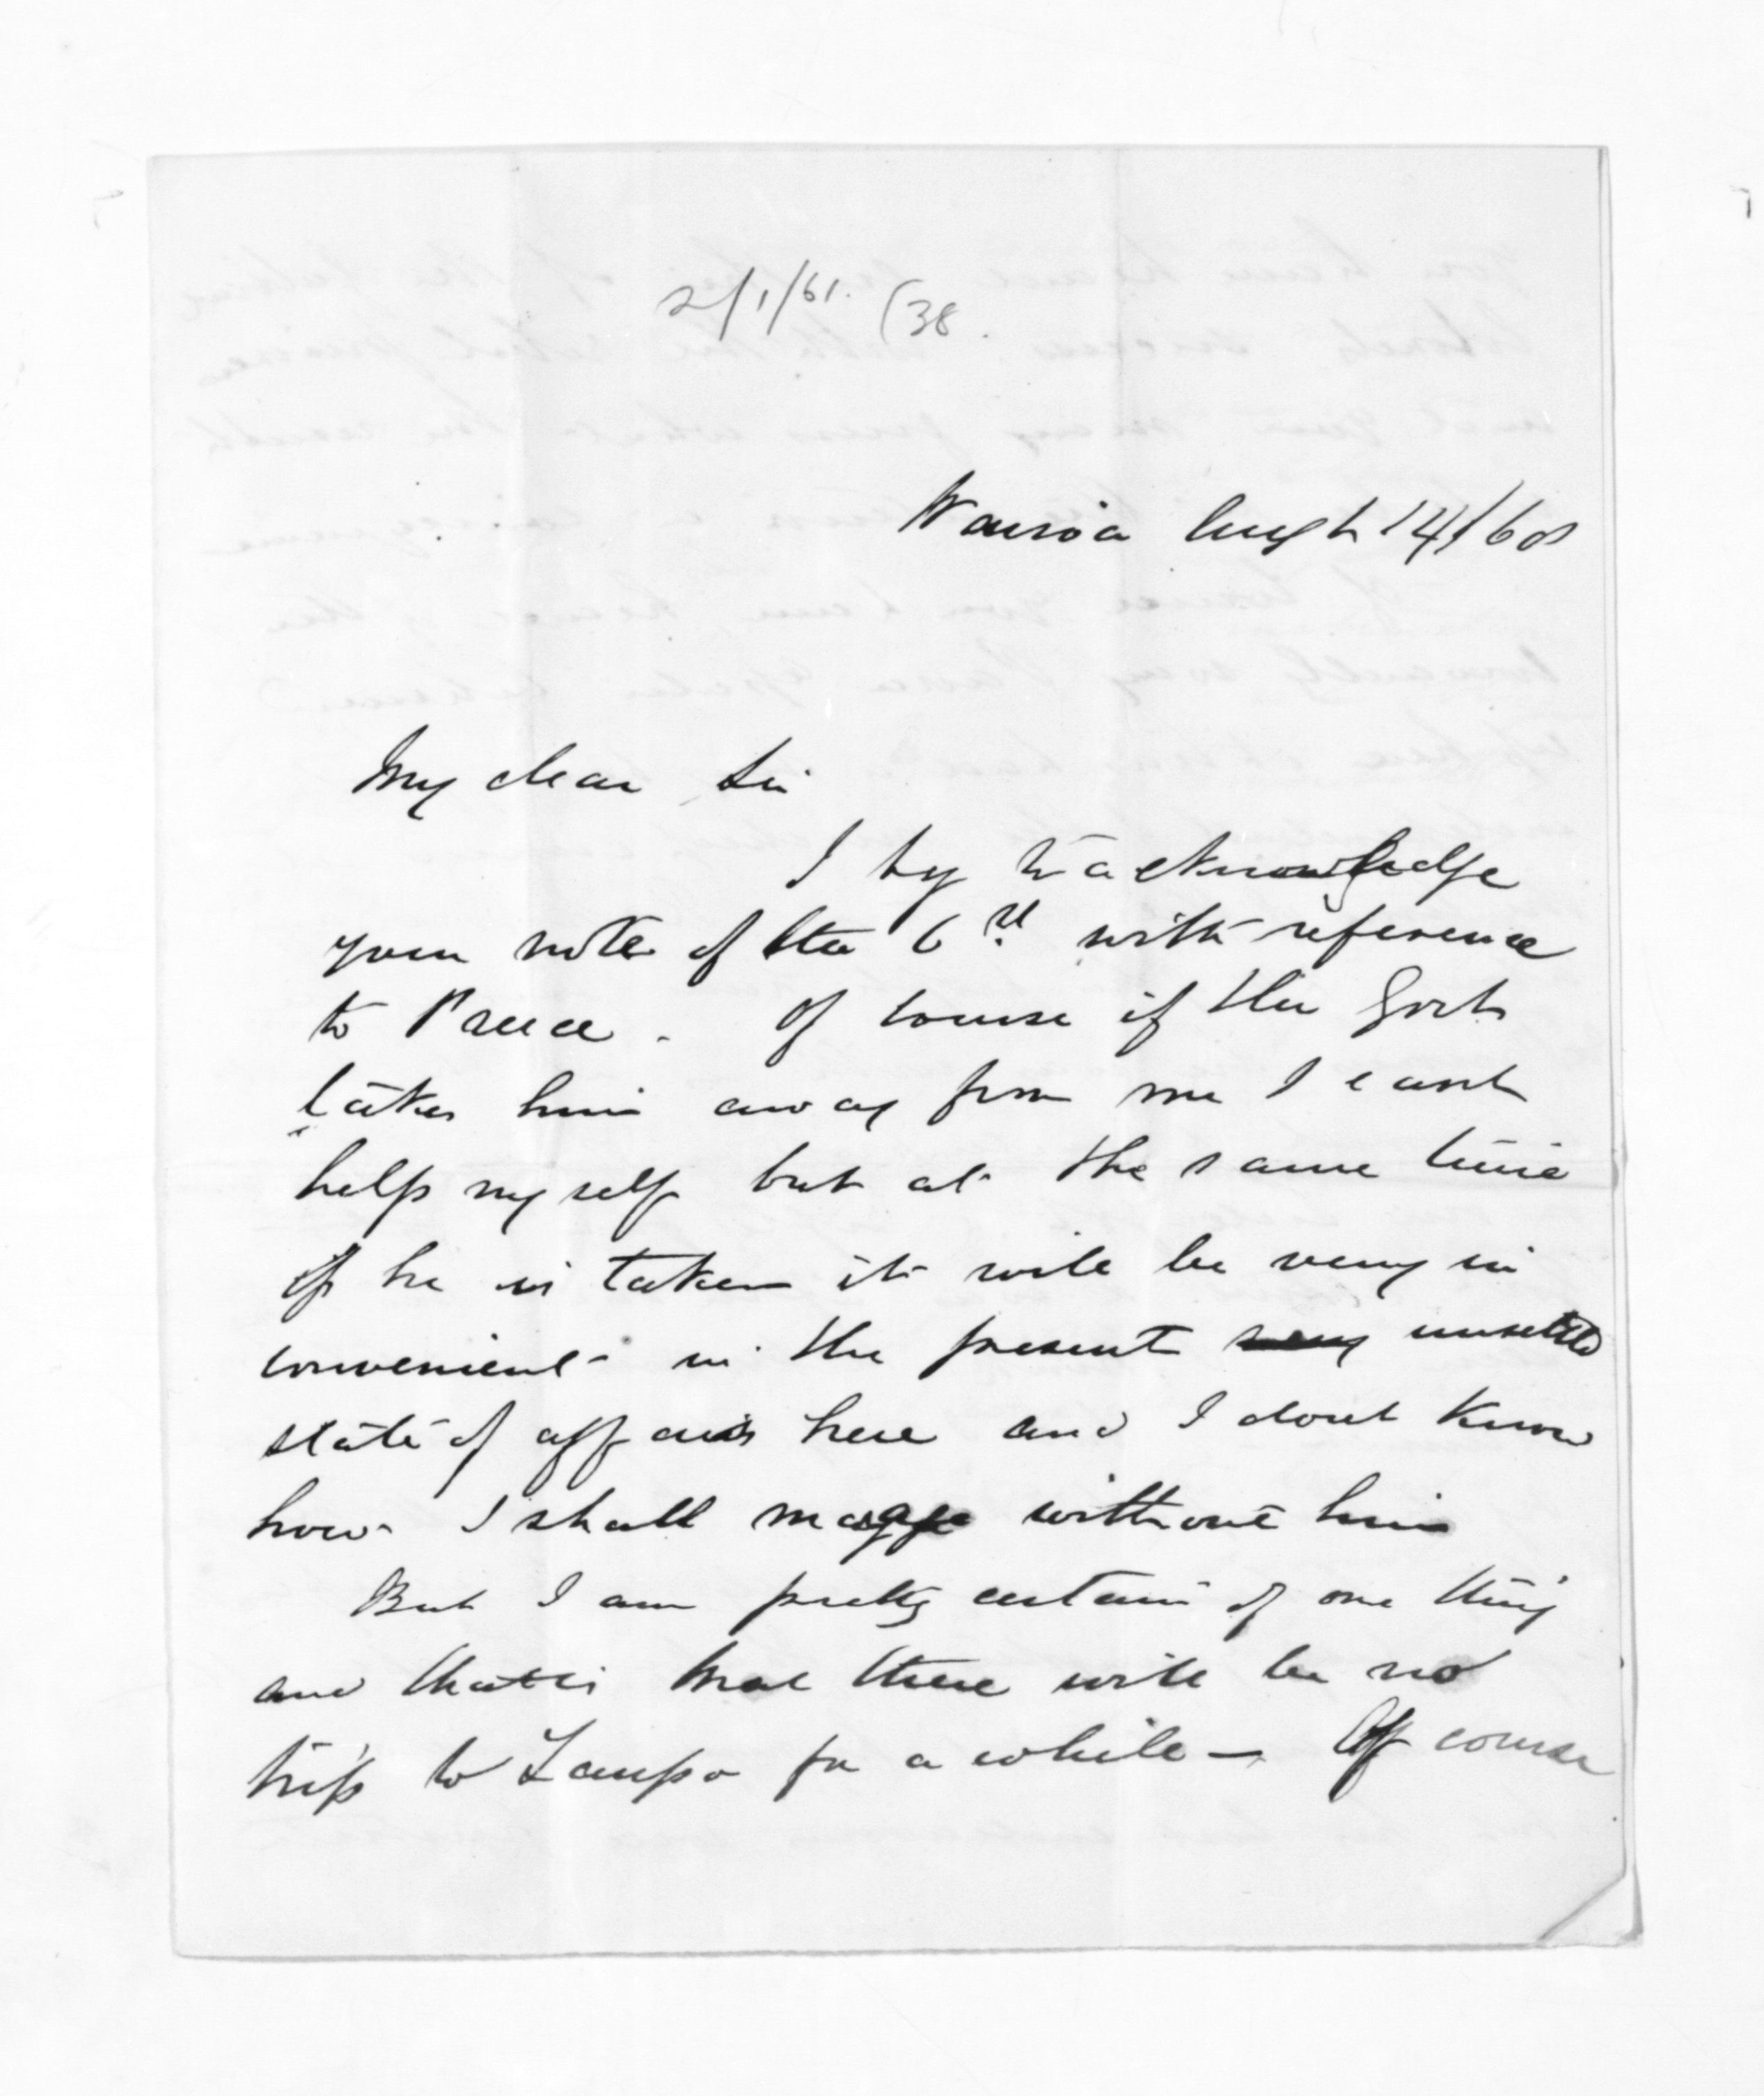 2/1/61. (38.
Wairoa Augt 14/68
My dear Sir
I beg to acknowledge
your note of the 6th with reference
to Preece. Of course if the Govt
takes him away from me I cant
help myself but at the same time
if he is taken it will be very in
convenient in the present very unsettled
state of affairs here and I dont know
how I shall manage without him
But I am pretty certain of one thing
and that is that there will be no
trip to Taupo for a while — Of course